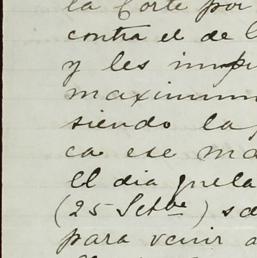 la Corte por
contra el de
y les imp
maximum
siendo la
ca ese ma
El dia
(25 Setbre) sa
para venir a